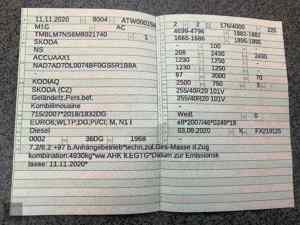 11.11.2020 9004 ATW000158
M1G AC
TMBLM7NS6M8021740
SKODA
NS
ACCUAAX1
NAD7AD7DL0074BF0GS5R1B8A
KODIAQ
SKODA (CZ)
Geländefz.Pers.bef.
Kombilimousine
715/2007*2018/1832DG
EURO6;WLTP;DG;PI/CI; M, N1 I
Diesel
0002 36DG 1968
7.2/8.2 +97 b.Anhängebetrieb*techn.zul.Ges-Masse d.Zug
kombination:4930kg*ww.AHK lt.EGTG*Datum zur Emissionsk
lasse: 11.11.2020*
2 2 176/4000 225
4699-4796 1882-1882
1665-1686 1895-1995
100
208 2430 2430
1230 1250
1230 1250
67 3000 70
2500 750 5
255/40R20 101V
255/40R20 101V
Weiß 0
e8*2007/46*0249*18
03.09.2020 K FX219125